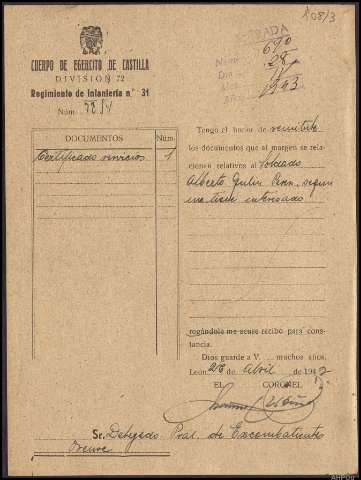 108/3
ENTRADA
690
28
1943
CUERPO DE EGERCITO DE CASTILLA
DIVISION 72
Regimiento de Infantería nº 31
Núm.
DOCUMENTOS Núm.
Certificado servicios 1
Tengo el honor de remitirle
los documentos que al margen se rela-
cionen relativos al soldado
Alberto según
me tiene interesado
rogándole me acuse recibo para cons-
tancia.
Dios guarde a V. muchos años.
León, 28 de Abril de 194
EL CORONEL
Sr. Delegado Pral. de Excombatientes
Orense
AHPOU